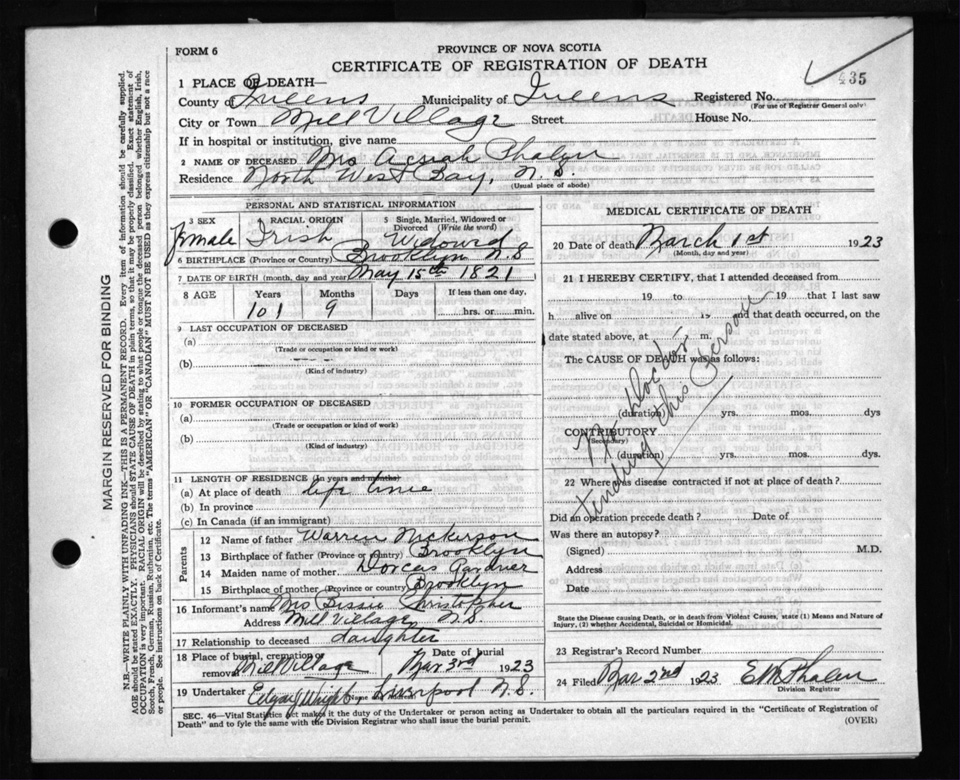 FORM 6
PROVINCE OF NOVA SCOTIA
CERTIFICATE OF REGISTRATION OF DEATH
435
1 PLACE OF DEATH—
County of Queens Municipality of Queens Registered No.
(For use of Registrar General only)
City or Town Mill Village Street House No.
If in hospital or institution, give name
2 NAME OF DECEASED Mrs Phalen
Residence North West Bay, N.S.
(Usual place of abode)
PERSONAL AND STATISTICAL INFORMATION
3 SEX 4 RACIAL ORIGIN 5 Single, Married, Widowed or Divorced (Write the word)
female Irish Widowed
6 BIRTHPLACE (Province or Country) Brooklyn N.S
7 DATE OF BIRTH (month, day and year) May 15th 1821
8 AGE Years Months Days If less than one day,
101 9 hrs. or min.
9 LAST OCCUPATION OF DECEASED
(a)
(Trade or occupation or kind or work)
(b)
(Kind of industry)
10 FORMER OCCUPATION OF DECEASED
(a)
(Trade or occupation or kind of work)
(b)
(Kind of industry)
11 LENGTH OF RESIDENCE (in years and months)
(a) At place of death life time
(b) In province
(c) In Canada (if an immigrant)
Parents
12 Name of father Warren Nickerson
13 Birthplace of father (Province or Country) Brooklyn
14 Maiden name of mother Dorcas Gardner
15 Birthplace of mother (Province or country) Brooklyn
16 Informant's name Mrs Bessie Christopher
Address Mill Village N.S.
17 Relationship to deceased daughter
18 Place of burial, cremation or removal Mill Village Date of burial Mar 3rd 1923
19 Undertaker Edgar Wright, Liverpool N.S.
MEDICAL CERTIFICATE OF DEATH
20 Date of death March 1st 1923
(Month, day and year)
21 I HEREBY CERTIFY, that I attended deceased from
19 to 19 that I last saw
h alive on 19 and that death occurred, on the
date stated above, at m.
The CAUSE OF DEATH was as follows:
No doctor
tending this person
(duration) yrs. mos. dys
CONTRIBUTORY
(Secondary)
(duration) yrs. mos. dys.
22 Where was disease contracted if not at place of death?
Did an operation precede death? Date of
Was there an autopsy?
(Signed) M.D.
Address
Date
State the Disease causing Death, or in death from Violent Causes, state (1) Means and Nature of Injury, (2) whether Accidental, Suicidal or Homicidal.
23 Registrar's Record Number
24 Filed Mar 2nd 1923 E M Phalen
Division Registrar
SEC. 46—Vital Statistics act makes it the duty of the Undertaker or person acting as Undertaker to obtain all the particulars required in the "Certificate of Registration of
Death" and to fyle the same with the Division Registrar who shall issue the burial permit.
(OVER)
MARGIN RESERVED FOR BINDING
N.B.—WRITE PLAINLY WITH UNFADING INK—THIS IS A PERMANENT RECORD. Every item of information should be carefully supplied.
AGE should be stated EXACTLY. PHYSICIANS should STATE CAUSE OF DEATH in plain terms, so that it may be properly classified. Exact statement of
OCCUPATION is very important. RACIAL ORIGIN will be described by stating to what people or tongue the deceased person belonged whether English, Irish,
Scotch, French, German, Russian, Ruthenian, etc. The terms "AMERICAN" OR "CANADIAN" MUST NOT BE USED as they express citizenship but not a race
or people. See instructions on back of Certificate.